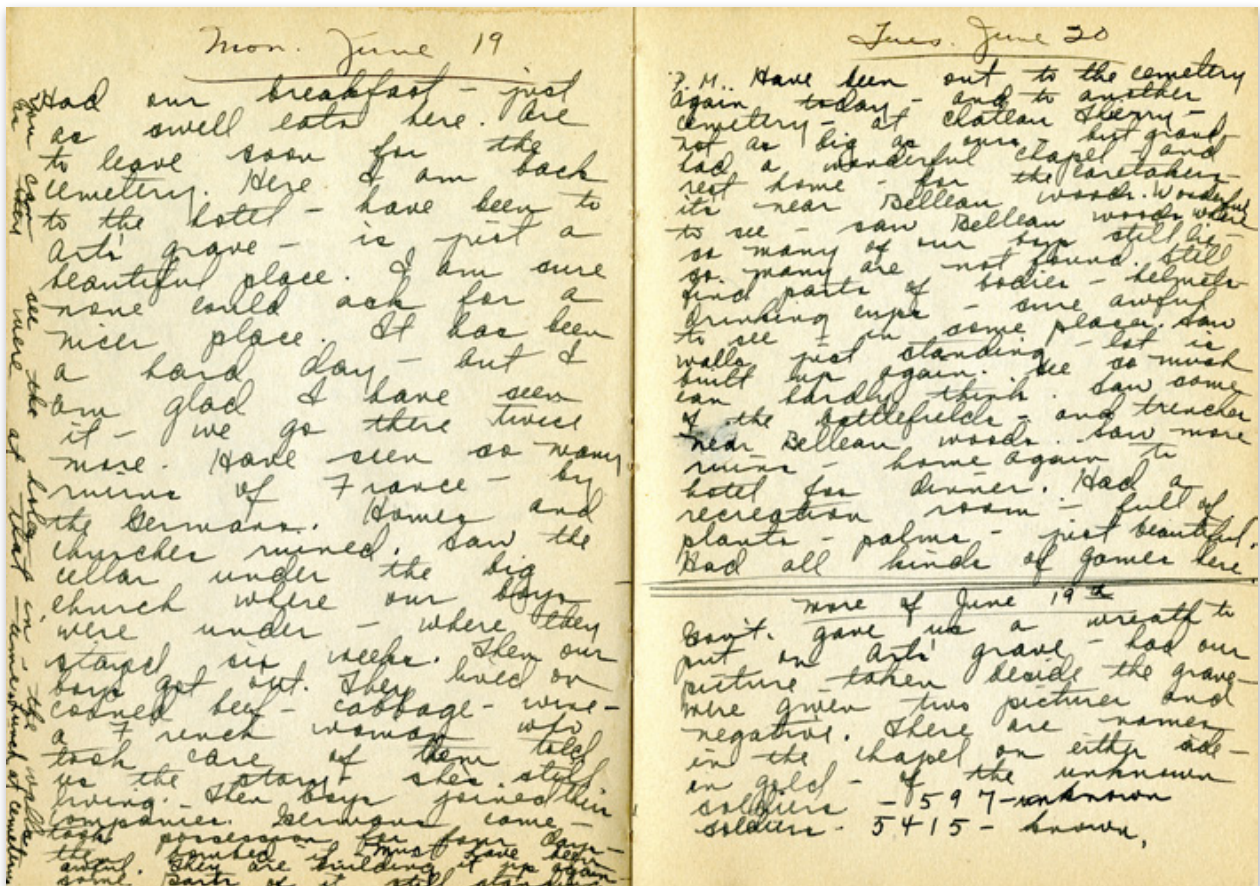 Mon. June 19
Had our breakfast - just
as swell eats here. Are
to leave soon for the
cemetery. Here I am back
to the hotel - have been to
Art's grave - is just a
beautiful place. I am sure
none could ask for a
nicer place. It has been
a hard day - but I
am glad I have seen
it - we go there twice
more. Have seen so many
ruins of France - by
the Germans. Homes and
churches ruined. Saw the
cellar under the big
church where our boys
were under - where they
stayed six weeks. Then our
boys got out. They lived on
corned beef - cabbage - wine -
a French woman who
took care of them told
us the story. She's still
living. Then boys joined their
companies. Germans came -
took possession for four days -
then bombed it - must have been
awful. They are building it up again -
some parts of it still
You can see the holes in the walls
as they were at that
Tues. June 20
P.M. Have been out to the cemetery
again today - and to another
cemetery - at Chateau Thierry -
not as big as ours - but grand
had a wonderful chapel and
rest home - for the caretakers -
it's near Belleau woods. Wonderful
to see - saw Belleau woods where
so many of our boys still lie -
so many are not found. Still
find parts of bodies - helmets
drinking cups - sure awful
to see - in some places saw
walls just standing - lot is
built up again. See so much
can hardly think. Saw some
of the battlefields - and trenches
near Belleau woods. Saw more
ruins - home again to
hotel for dinner. Had a
recreation room - full of
plants - palms - just beautiful.
Had all kinds of games here.
more of June 19th
Gov't. gave us a wreath to
put on Art's grave - had our
picture taken beside the grave -
were given two pictures and
negative. There are names
in the chapel on either side -
in gold - of the unknown
soldiers - 597 - unknown
soldiers - 5415 - known.